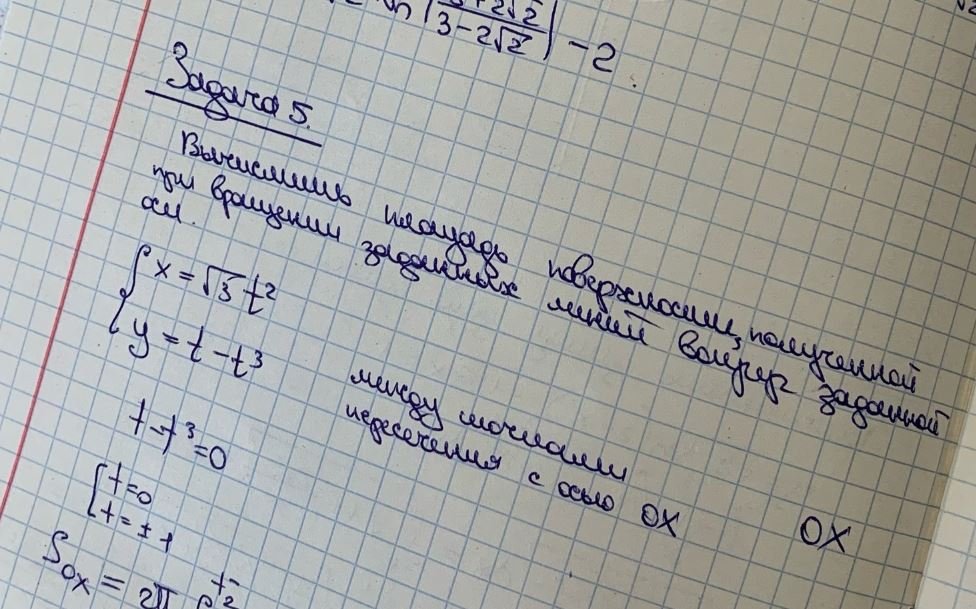 3+2√2
3-2√2 | - 2
Задача 5.
Вычислить площадь поверхности, полученной
при вращении заданных линий вокруг заданной
оси.
x = √3 t²
y = t - t³
между точками
пересечения с осью OX
OX
t - t³ = 0
t = 0
t = ± 1
S_OX = 2π